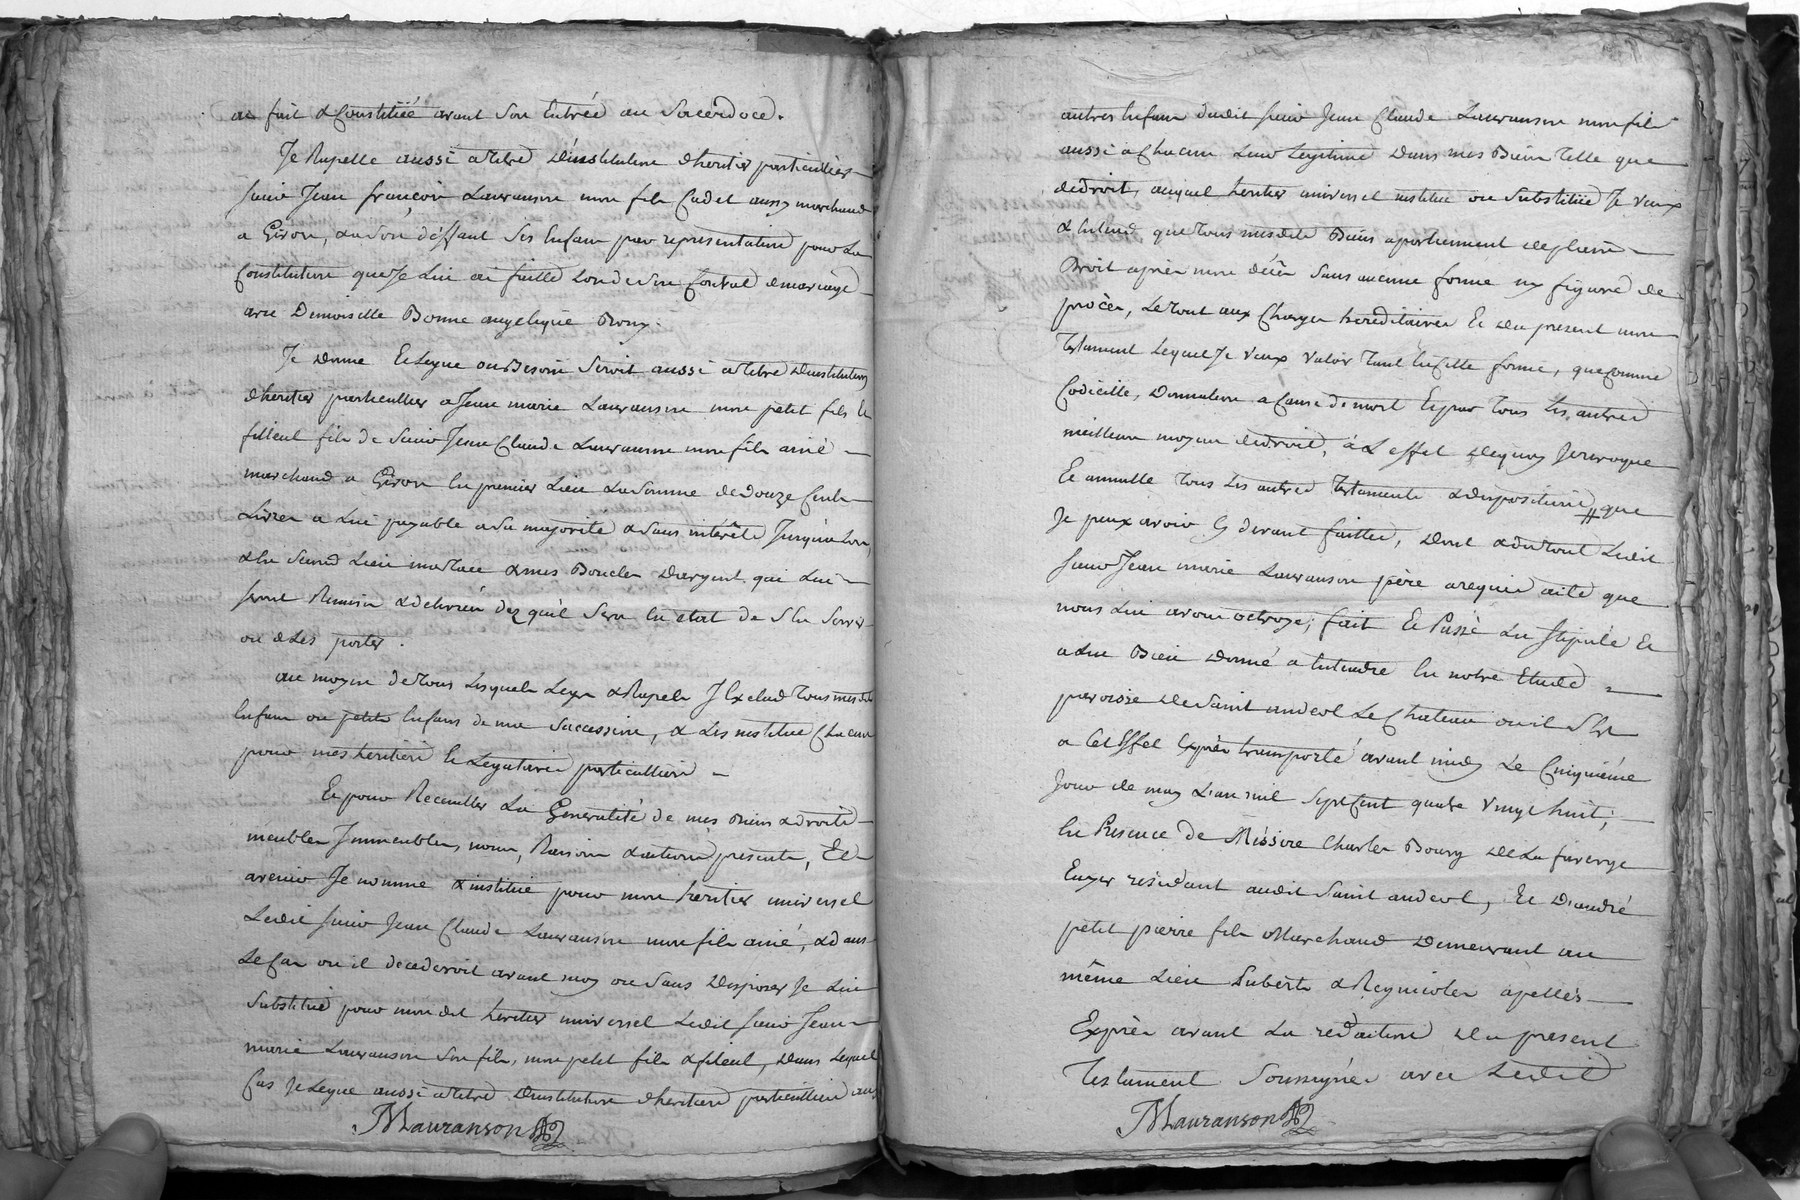 ai fait & Constitüé avant Son Entrée au Sacerdoce.
Je Rapelle aussi a titre D'institution d'heritier particulier
Sieur Jean françois Lauranson mon fils Cadet aussy marchand
a Givon, & a Son déffaut Ses Enfans par representation pour La
Constitution que Je Lui ai faitte Lors de Son Contrat de mariage
avec Demoiselle Bonne angelique Roux.
Je Donne Et Legue ou Besoin Seroit aussi a titre D'institution
d'heritier particullier a Jean marie Lauranson mon petit fils Et
filleul fils de Sieur Jean Claude Lauranson mon fils ainé
marchand a Givon En premier Lieu La Somme de douze Cents
Livres a Lui payable a Sa majorité & Sans intérêts Jusqu'alors,
& En Second Lieu ma tace & mes Boucles D'argent qui Lui
Seront Remises & delivrées dez qu'il Sera En état de S'En Servir
ou de Les porter.
au moyen de tous Lesquels Legs & Rapels J'Exclud tous mesdits
Enfans ou petits Enfans de ma Succession, & Les institue Chacun
pour mes heritiers & Legataires particulliers
Et pour Recueiller La Generalité de mes Biens & droits
meubles Immeubles, noms, Raisons & actions présents, Et
avenir Je nomme & institue pour mon heritier universel
Ledit Sieur Jean Claude Lauranson mon fils ainé, & dans
Le Cas ou il decederoit avant moy ou Sans Disposer Je Lui
Substitue pour mondit heritier universel Ledit Sieur Jean
marie Lauranson Son fils, mon petit fils & filleul, Dans Lequel
Cas Je Legue aussi a titre D'institution d'heritiers particulliers aux
MLauranson
autres Enfans dudit Sieur Jean Claude Lauranson mon fils
aussi a Chacun Leur Legitime Dans mes Biens Telle que
de droit, auquel heritier universel institué ou Substitué Je veux
& Entend que tous mesdits Biens apartiennent de plein
Droit après mon décès Sans aucune forme ny figure de
procès, Le tout aux Charges hereditaires Et du present mon
Testament Lequel Je veux valoir Tant En Cette forme, que Comme
Codicille, Donnation a Cause de mort Et par Tous Les autres
meilleurs moyens de droit, à L'effet De quoy Je revoque
Et annulle Tous Les autres Testaments & dispositions que
Je peux avoir Cy devant faittes, Dont & du tout Ledit
Sieur Jean marie Lauranson père a requis acte que
nous Lui avons octroyé; fait Et Passé Lu Stipulé Et
a Lui Bien Donné a Entendre En notre Etude
paroisse De Saint andeol Le Chateau ou il S'Est
a Cet Effet Exprès transporté avant midy Le Cinquième
Jour de may L'an mil Sept Cent quatre vingt huit;
En Presence De Méssire Charles Boury De La faverge
Ecuyer résidant audit Saint andeol, Et D'andré
petit pierre fils Marchand Demeurant au
même Lieu apellés
Exprès avant La redaction Du present
Testament Soussignés avec Ledit
MLauranson